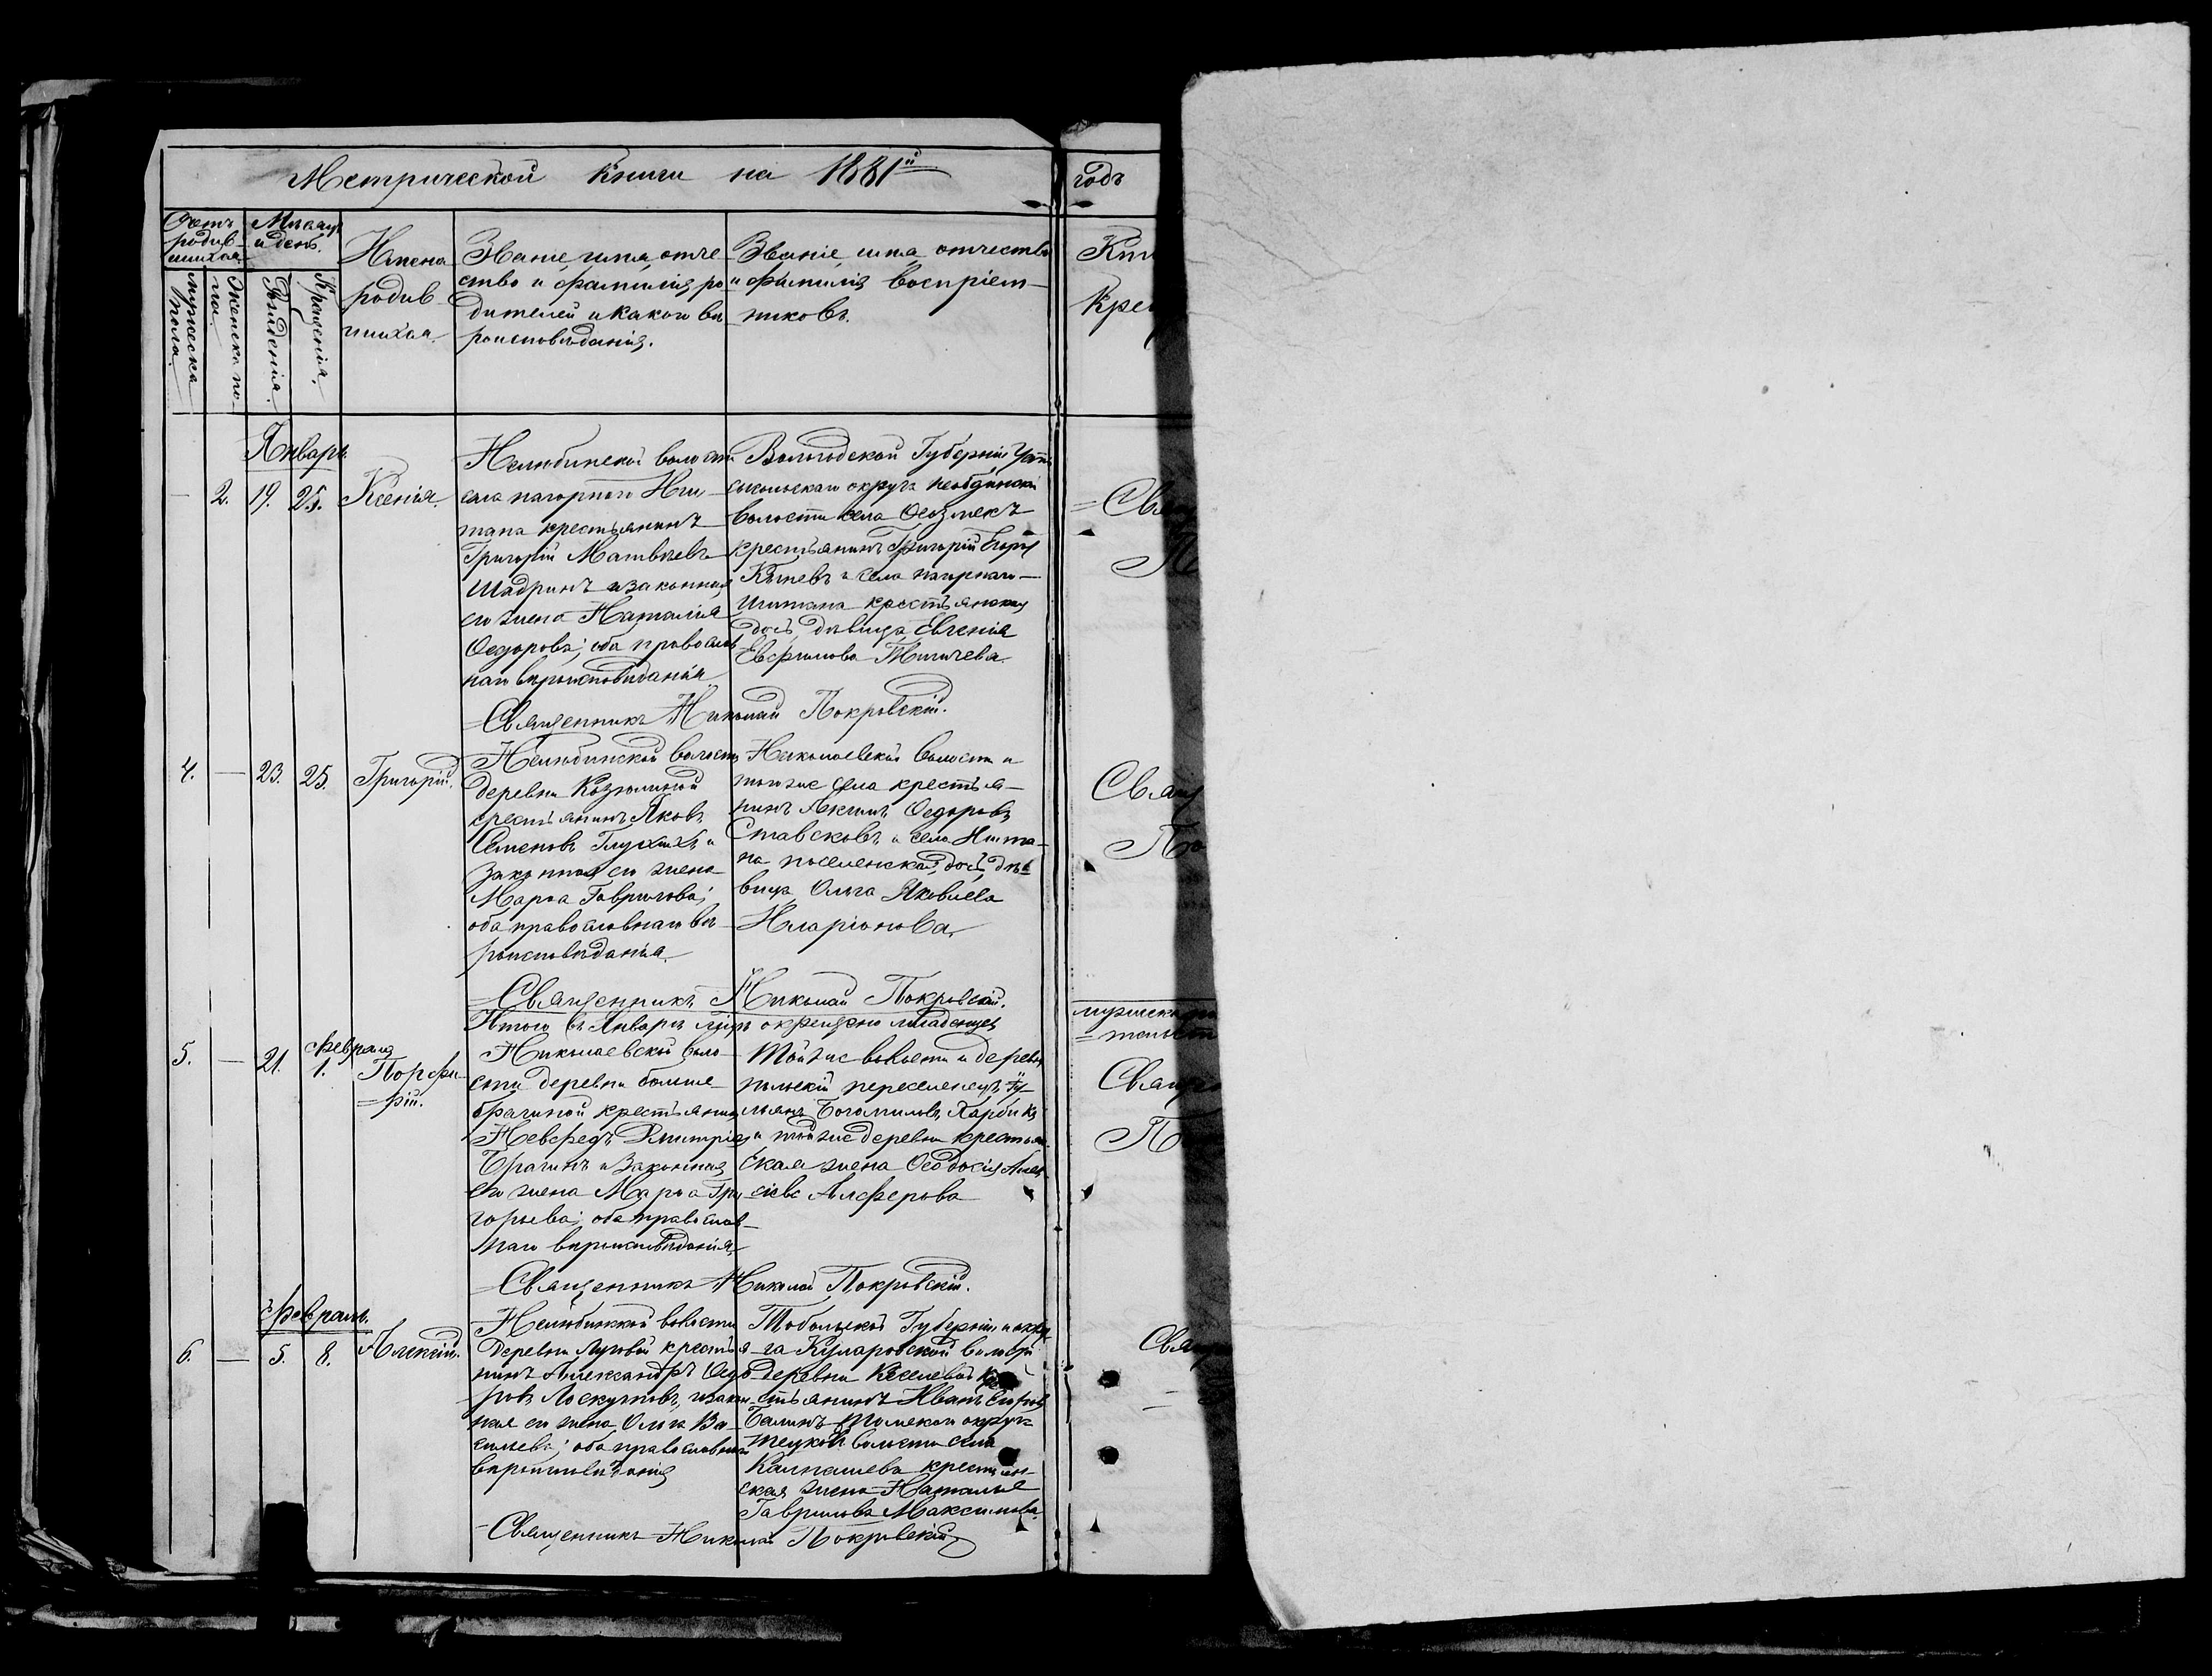 Метрической Книги на 1881й
годъ
Счетъ родив-
шихся.
Мѣсяцъ
и день.
мужеска
пола.
Женска по-
ла.
Рожденія.
Крещенія.
Имена
родив
шихся.
Званіе, имя, отче-
ство и фамилія, ро-
дителей и какого вѣ
роисповѣданія.
Званіе, имя, отчество
и фамилія воспріем-
никовъ.
Январь.
2. 19. 25. Ксенія.
Нелюбинской волости
села нагорнаго Иш-
тана крестьянинъ
Григорій Матвѣевъ
Шадринъ и законная
его жена Наталія
Ѳедорова; оба православ
наго вѣроисповѣданія.
Вологодской Губерніи Усть
сысольскаго округа
волости села
крестьянинъ Григорій
и села нагорнаго
Иштана крестьянская
дочь, дѣвица, Евгенія
Евфимова
Священникъ Николай Покровскій.
4. — 23. 25. Григорій.
Нелюбинской волости
деревни Козюлиной
крестьянинъ Яковъ
Семеновъ Глухихъ и
законная его жена
Марѳа Гаврилова;
оба православнаго вѣ-
роисповѣданія.
Николаевской волости и
тогоже села крестья-
нинъ Акимъ Ѳедоровъ
Ставсковъ и села Ишта-
на поселенская дочь, дѣ-
вица, Ольга Яковлева
Иларіонова.
Священникъ Николай Покровскій.
Итого въ Январѣ мѣсяцѣ окрещено младенцевъ
5. — 21. Февраля
1. Порфи-
рій.
Николаевской воло-
сти деревни больше-
брагиной крестьянинъ
Димитріевъ
Брагинъ и законная
его жена Марѳа Гри
горьева; оба православ-
наго вѣроисповѣданія.
Тойже волости и деревни
польскій переселенецъ
Богомиловъ
и тойже деревни крестьян
ская жена Ѳеодосія
Алферова
Священникъ Николай Покровскій.
Февраль.
6. — 5. 8. Алексій.
Нелюбинской волости
деревни Луговой крестья-
нинъ Александръ Ѳедо
ровъ Лоскутовъ, и закон
ная его жена, Ольга Ва-
сильева; оба православнаго
вѣроисповѣданія
Тобольской Губерніи и окру
га Куларовской волости
деревни Киселевой кре
стьянинъ Иванъ Егоровъ
Балинъ Томскаго округа
волости села
Колпашева крестьян-
ская жена Наталья
Гаврилова Максимова.
Священникъ Николай Покровскій